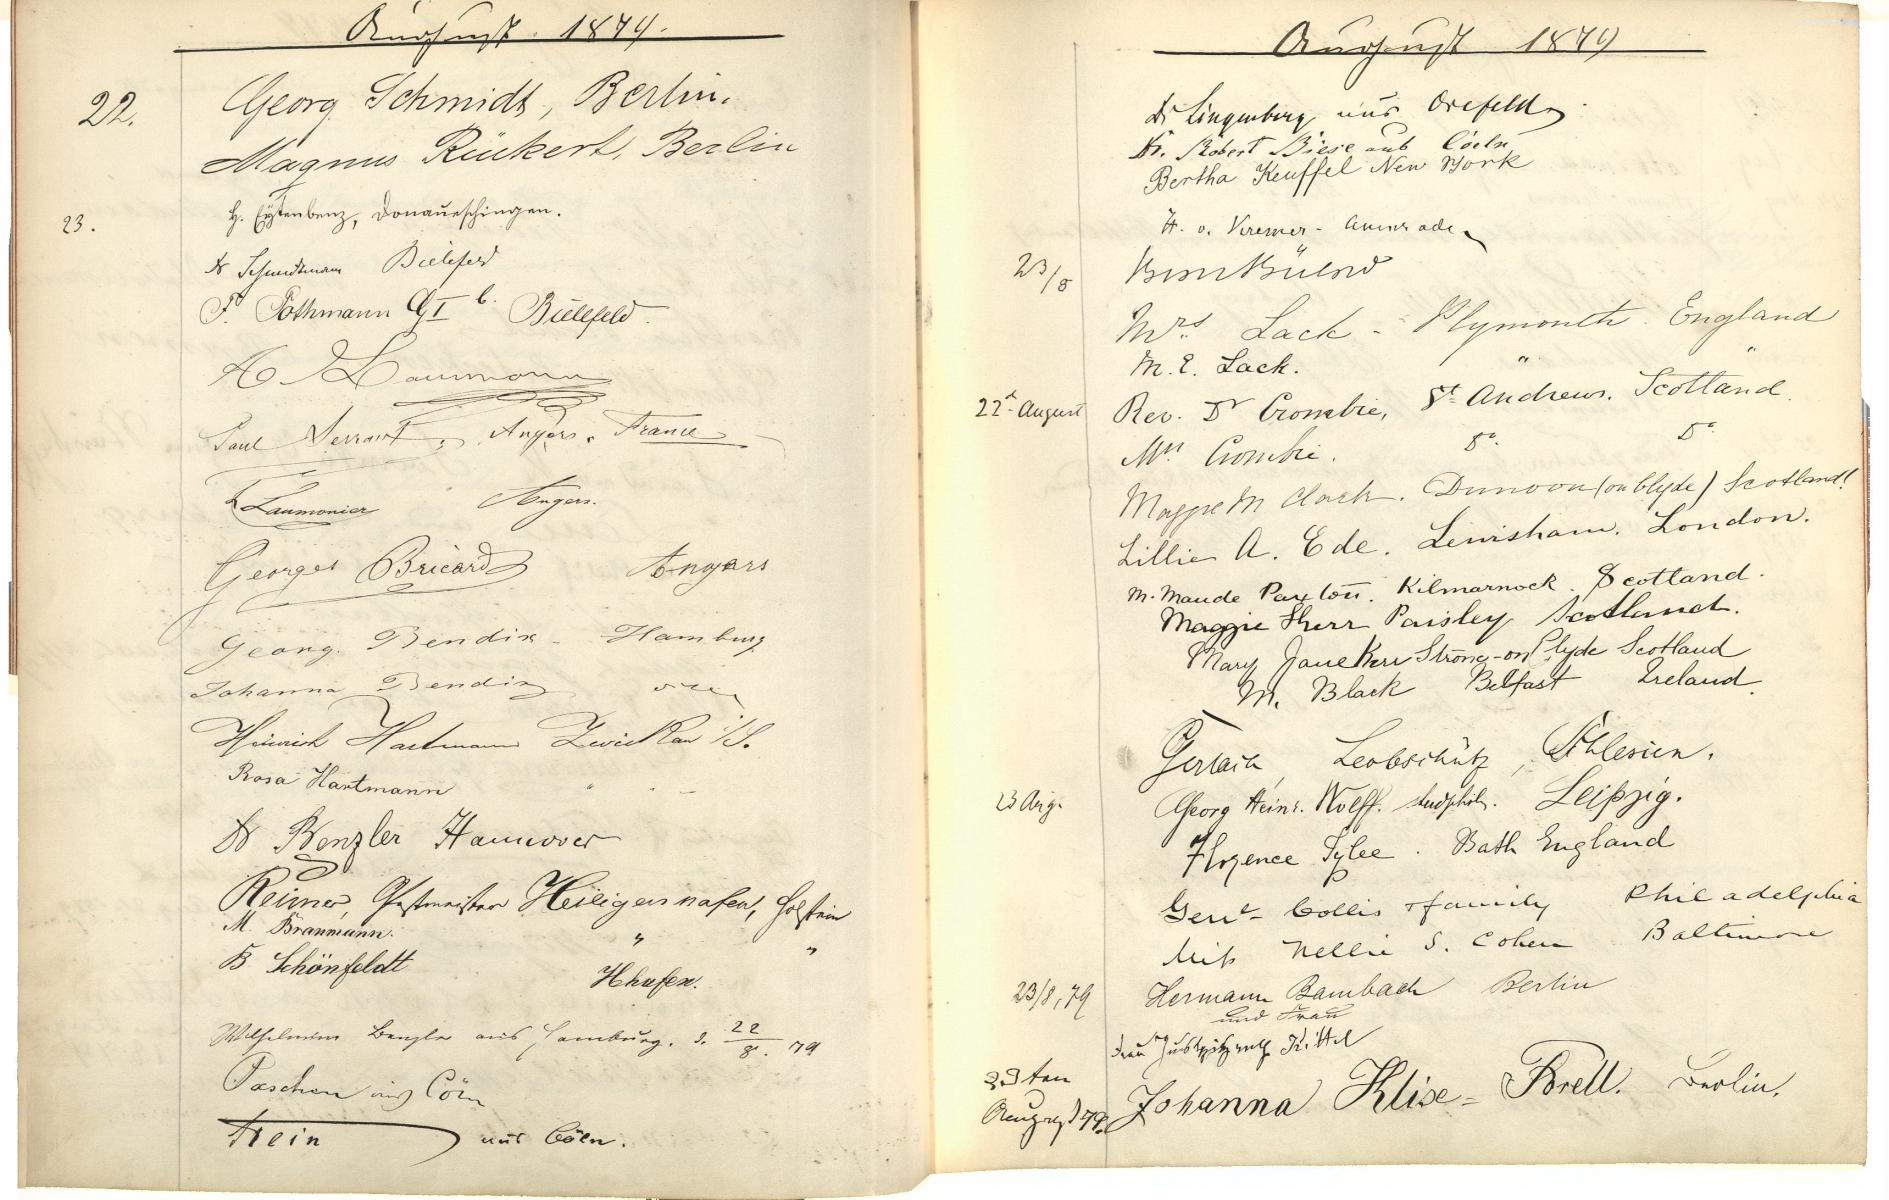 August. 1879.
22.
Georg Schmidt, Berlin.
Magnus Rückert, Berlin
23.
H. Eystenbenz, Donaueschingen.
Dr Schmidtmann Bielefeld
F. Pothmann GI b. Bielefeld.
A Laumann
Paul Angers. France
Laumonier Angers.
Georges Bricard Angers
Georg. Bendix - Hamburg
Johanna Bendix
Heinrich Hartmann Zwickau i/S.
Rosa Hartmann " " -
Dr Benzler Hannover
Reimer, Postmeister Heiligenhafen, Holstein
M. Braumann. " "
B Schönfeldt Hhafen.
Benzler aus Hamburg. d. 22/8. 79
Paschen aus Cöln
Stein aus Cöln.
August 1879
Dr Lingenberg aus Crefeld
Dr. Robert Biese aus Cöeln
Bertha Keuffel New York
H. v. Kremer - Auenrode
23/8
Bülow
Mrs. Lack - Plymouth. England
M. E. Lack. " "
22d August
Rev. Dr Crombie, St Andrews. Scotland.
Mrs Crombie. Do. Do.
Maggie M Clark. Dunoon (on Clyde) Scotland!
Lillie A. Ede. Lewisham. London.
M. Maude Paxton. Kilmarnock. Scotland.
Maggie Sherr Paisley Scotland.
Mary Jane Kerr Strone-on Clyde Scotland
M. Black Belfast Ireland.
Gerlach, Leobschütz, Schlesien.
23 Aug.
Georg Heinr. Wolff. stud. phil. Leipzig.
Florence Tylee. Bath England
Genl Collis & family Philadelphia
Miss Nellie S. Cohen Baltimore
23/8, 79
Hermann Bambach Berlin
und Frau
Frau Justizrath Kittel
23ten
August 79.
Johanna Klixe - Brell. Berlin.